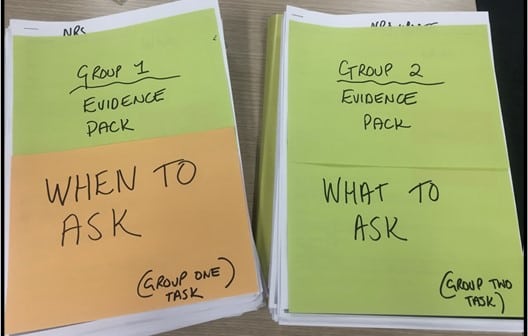 GROUP 1
EVIDENCE
PACK
WHEN TO
ASK
(GROUP ONE
TASK)
GROUP 2
EVIDENCE
PACK
WHAT TO
ASK
(GROUP TWO
TASK)